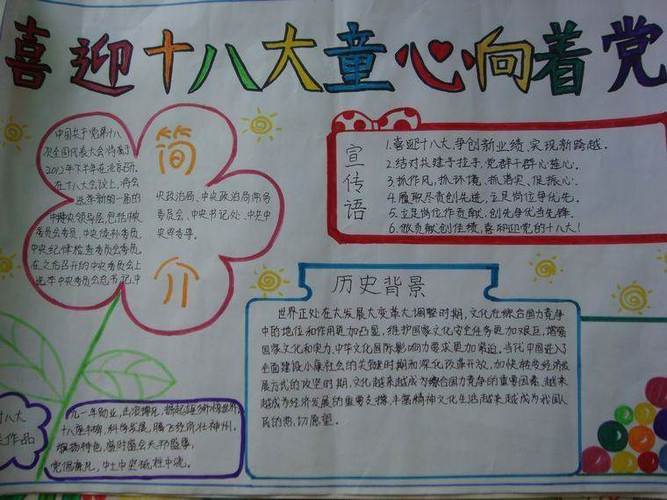 喜迎十八大童心向着党
简介
中国共产党第十八
次全国代表大会将于
2012年下半年在北京召开。
在十八大会议上,将会
选举新的一届的
中央领导层,包括中央
委员会委员、中央候补委员、
中央纪律检查委员会委员。
在之后召开的中央委员会上
选举中央委员会总书记、中
央政治局、中央政治局常务
委员会、中央书记处、中央
军委等。
宣传语
1.喜迎十八大,争创新业绩,实现新跨越。
2.结对共建手拉手,党群干群心连心。
3.抓作风,抓环境,抓落实,促振心。
4.履职尽责创先进,立足岗位争优先。
5.立足岗位作贡献,创先争优当先锋。
6.做贡献创佳绩,喜迎党的十八大!
历史背景
世界正处在大发展大变革大调整时期,文化在综合国力竞争
中的地位和作用更加凸显,维护国家文化安全任务更加艰巨,增强
国家文化软实力、中华文化国际影响力要求更加紧迫。当代中国进入了
全面建设小康社会的关键时期和深化改革开放、加快转变经济发
展方式的攻坚时期,文化越来越成为综合国力竞争的重要因素、越来
越成为经济发展的重要支撑,丰富精神文化生活越来越成为我国人
民的热切愿望。
十八大
作品
科学发展,腾飞经济壮神州。
特色,盛时盛会
中流。